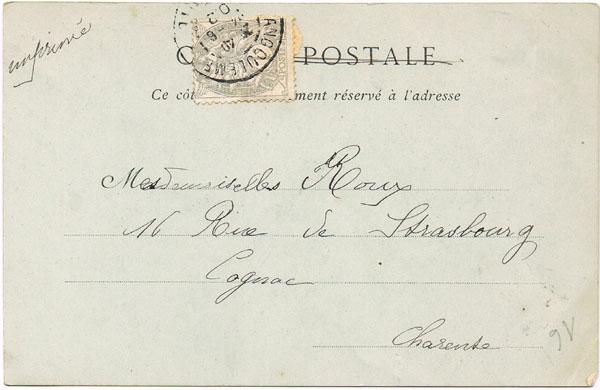 imprimé
C POSTALE
Ce côt ment réservé à l'adresse
ANGOULEME
POSTE
Mesdemoiselles Roux
16 Rue de Strasbourg
Cognac
Charente